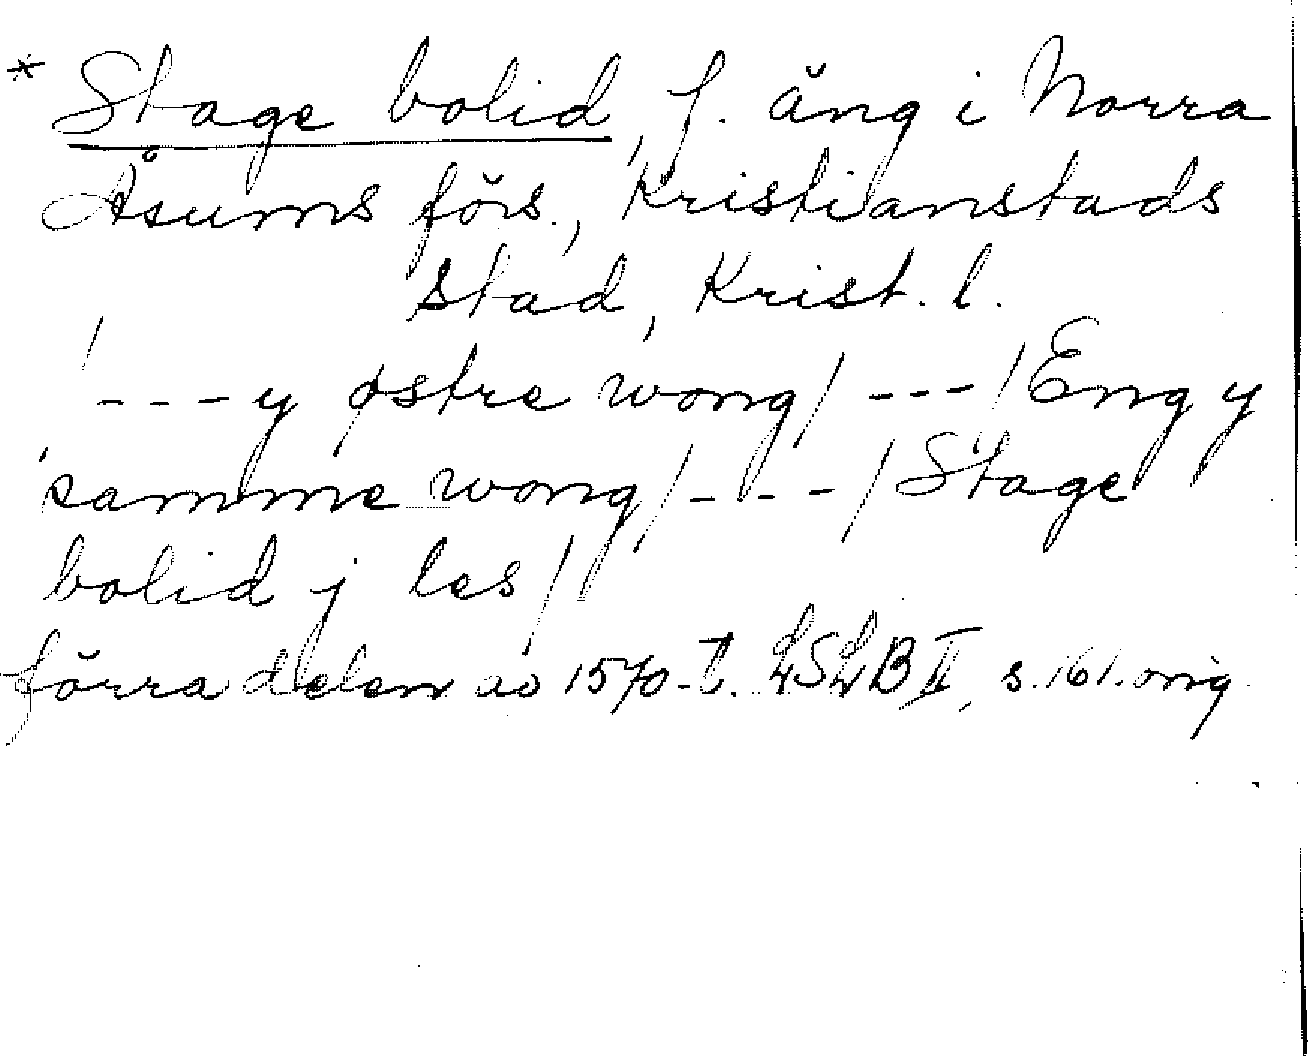 * Stage bolid, f. äng i Norra
Åsums förs., Kristianstads
stad, Krist. l.
---y østre wong/ ---/Eng y
samme wong/---/Stage
bolid j les/
förra delen av 1570-t. LSLB II, s. 161. orig